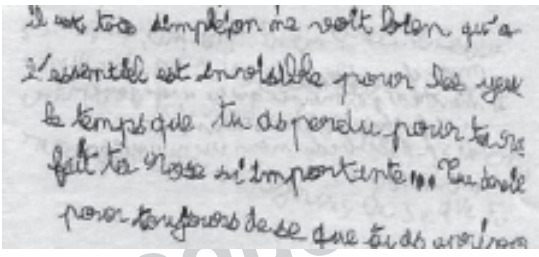 il est tros simple fon ne voit bien qu'a
l'essentiel est invisible pour les yeu
le temps que tu as perdu pour ta ro
fait ta Rose si importente... Tu devie
pour toujours de se que tu as